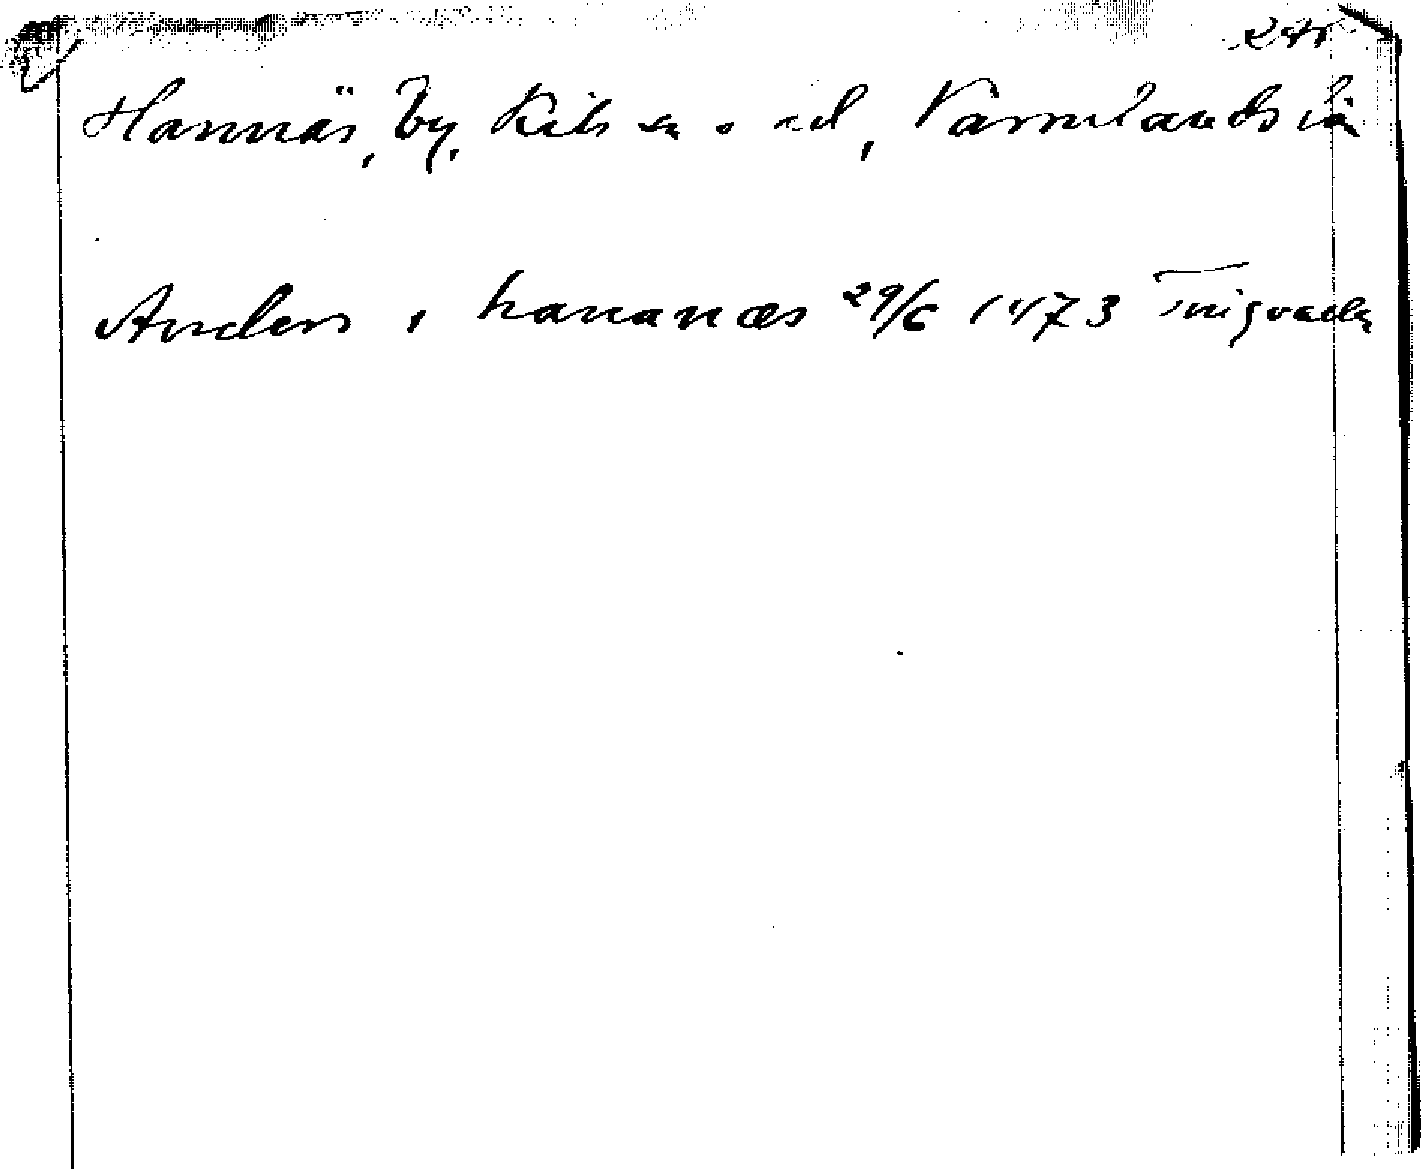 Hannäs, by, Kils sn o hd, Värmlands län
Anders i hananæs 29/6 1473 Tingvalla